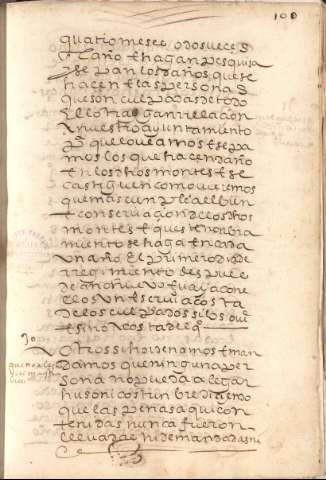 100
quatro meses o dos veces
el año e hagan pesquisa
y sepan los daños que se
hacen e las personas
que son culpadas de todo
ello hagan relacion
a nuestro ayuntamiento
que lo veamos e sepa
mos los que hacen daño
en los dhos montes e se
castiguen como vieremos
que mas cunple al bien
e conservacion de los dhos
montes e que este nonbra
miento se haga en cada
un año el primero dia de
rregimiento despues
de año nuevo e vaya con
ellos un escrivano a costa
de los culpados si los oui
e si no a costa de
30
Otrosi hordenamos e man
damos que ninguna per
sona no pueda alegar
huso ni costunbre diziendo
que las penas aqui con
tenidas nunca fueron
llevadas ni demandadas ni